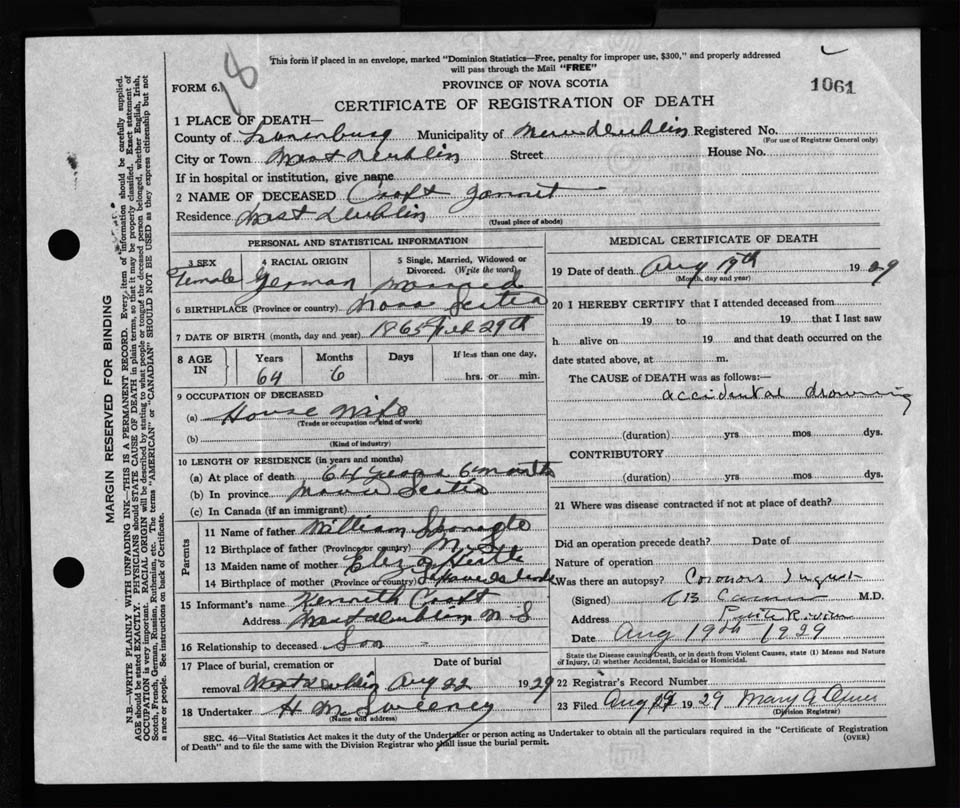 This form if placed in an envelope, marked "Dominion Statistics—Free, penalty for improper use, $300," and properly addressed
will pass through the Mail "FREE"
18
FORM 6.
PROVINCE OF NOVA SCOTIA
1061
CERTIFICATE OF REGISTRATION OF DEATH
1 PLACE OF DEATH—
County of Lunenburg Municipality of New Dublin Registered No.
(For use of Registrar General only)
City or Town West Dublin Street House No.
If in hospital or institution, give name
2 NAME OF DECEASED Croft Jannet
Residence West Dublin
(Usual place of abode)
PERSONAL AND STATISTICAL INFORMATION
3 SEX 4 RACIAL ORIGIN 5 Single, Married, Widowed or Divorced. (Write the word)
Female German Married
6 BIRTHPLACE (Province or country) Nova Scotia
7 DATE OF BIRTH (month, day and year) 1865 Feb 29th
8 AGE IN Years Months Days If less than one day,
64 6 hrs. or min.
9 OCCUPATION OF DECEASED
(a) House Wife
(Trade or occupation or kind of work)
(b)
(Kind of industry)
10 LENGTH OF RESIDENCE (in years and months)
(a) At place of death 64 years 6 months
(b) In province Nova Scotia
(c) In Canada (if an immigrant)
Parents
11 Name of father William Sponagle
12 Birthplace of father (Province or country) N S
13 Maiden name of mother
14 Birthplace of mother (Province or country)
15 Informant's name Kenneth Croft
Address West Dublin N S
16 Relationship to deceased Son
17 Place of burial, cremation or Date of burial
removal West Dublin Aug 22 1929
18 Undertaker H McSweeney
(Name and address)
MEDICAL CERTIFICATE OF DEATH
19 Date of death Aug 19th 1929
(Month, day and year)
20 I HEREBY CERTIFY that I attended deceased from
19 to 19 that I last saw
h alive on 19 and that death occurred on the
date stated above, at m.
The CAUSE OF DEATH was as follows:—
accidental drowning
(duration) yrs mos dys.
CONTRIBUTORY
(duration) yrs mos dys.
21 Where was disease contracted if not at place of death?
Did an operation precede death? Date of
Nature of operation
Was there an autopsy? Coroners Inquest
(Signed) M.D.
Address Petite Riviere
Date Aug 19th 1929
State the Disease causing Death, or in death from Violent Causes, state (1) Means and Nature
of Injury, (2) whether Accidental, Suicidal or Homicidal.
22 Registrar's Record Number
23 Filed Aug 1929 Mary
(Division Registrar)
SEC. 46—Vital Statistics Act makes it the duty of the Undertaker or person acting as Undertaker to obtain all the particulars required in the "Certificate of Registration
of Death" and to file the same with the Division Registrar who shall issue the burial permit. (OVER)
MARGIN RESERVED FOR BINDING
N.B.—WRITE PLAINLY WITH UNFADING INK—THIS IS A PERMANENT RECORD. Every item of information should be carefully supplied.
AGE should be stated EXACTLY. PHYSICIANS should STATE CAUSE OF DEATH in plain terms, so that it may be properly classified. Exact statement of
OCCUPATION is very important. RACIAL ORIGIN will be described by stating to what people or tongue the deceased person belonged, whether English, Irish,
Scotch, French, German, Russian, Ruthenian, etc. The terms "AMERICAN" or "CANADIAN" SHOULD NOT BE USED as they express citizenship but not
a race or people. See instructions on back of Certificate.